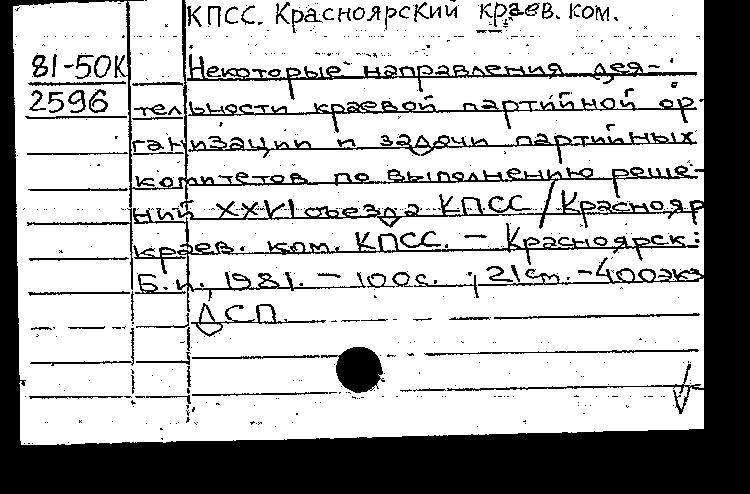 КПСС. Красноярский краев. ком.
81-50К Некоторые направления дея-
2596 тельности краевой партийной ор-
ганизации и задачи партийных
комитетов по выполнению реше-
ний XXVI съезда КПСС / Краснояр
краев. ком. КПСС. - Красноярск:
Б.и., 1981. - 100с. ; 21 ст. - 400экз
ДСП.